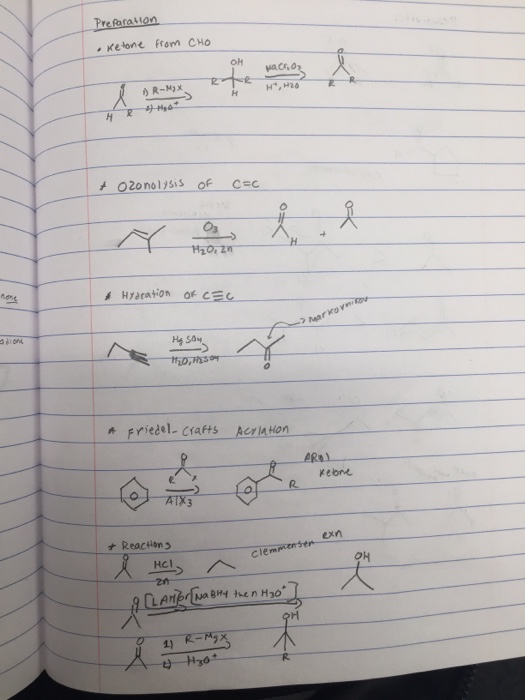 Preparation
• Ketone from CHO
O OH O
R R NaCr2O7 R R
H R 1) R-MgX H H+, H2O
2) H3O+
* Ozonolysis of C=C
O3 O O
H2O, Zn H +
* Hydration of C≡C
Markovnikov
Hg SO4
H2O, H2SO4 O
* Friedel-Crafts Acylation
O O Aryl
R X R Ketone
AlX3
* Reactions
O HCl Clemmensen exn
Zn OH
O [LAH] or [NaBH4 then H3O+]
O 1) R-MgX OH
2) H3O+ R